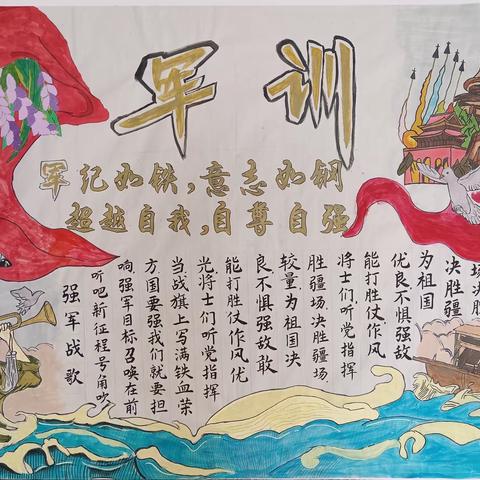 军训
军纪如铁,意志如钢
超越自我,自尊自强
强军战歌
听吧新征程号角吹
响,强军目标召唤在前
方,国要强我们就要担
当战旗上写满铁血荣
光.将士们听党指挥
能打胜仗作风优
良不惧强敌敢
较量为祖国决
胜疆场.决胜疆场.
将士们.听党指挥
能打胜仗作风
优良不惧强敌
为祖国
决胜疆
场决胜